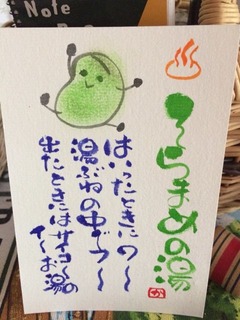 Note
そらまめの湯
はいったときに
湯ぶねの中でフ〜
出たときにはサイコ〜の
イ〜お湯